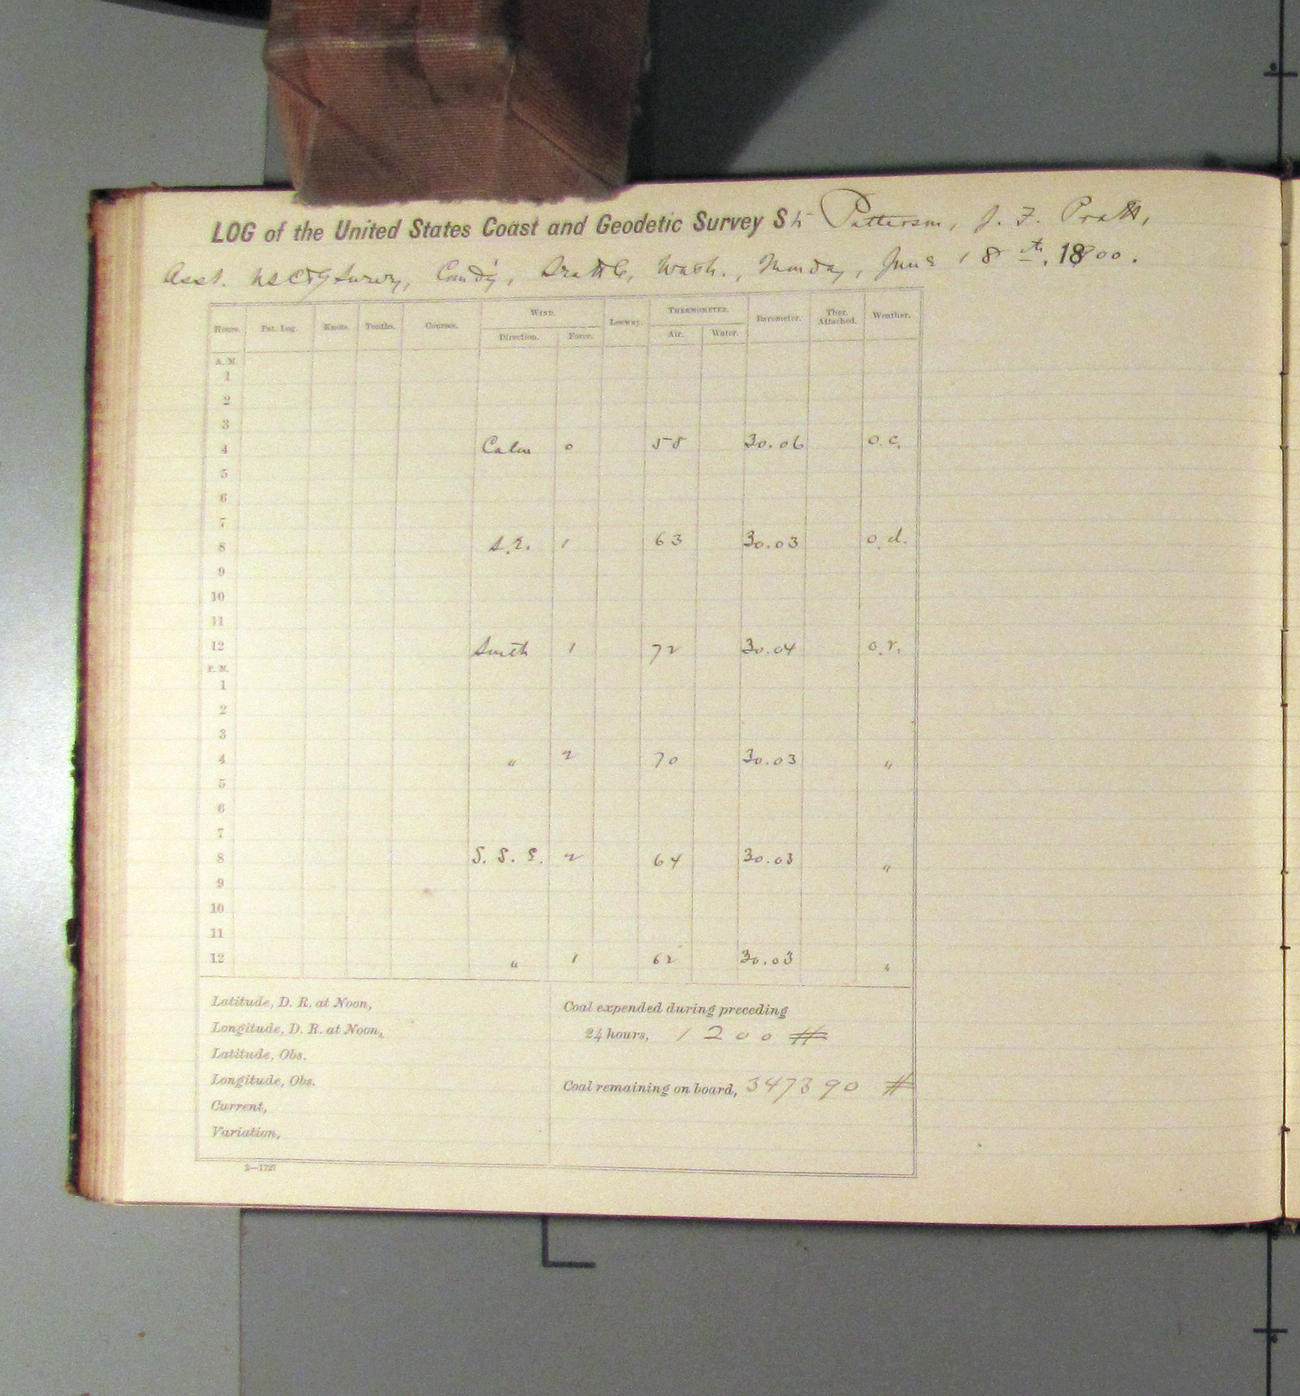 LOG of the United States Coast and Geodetic Survey Str Patterson, J. F. Pratt,
Asst. USC&G Survey, Comd'g, Seattle, Wash., Monday, June 18th, 1900.
Hours. Pat. Log. Knots. Tenths. Courses. WIND. Direction. Force. Leeway. THERMOMETER. Air. Water. Barometer. Ther. Attached. Weather.
A. M.
1
2
3
4 Calm 0 58 30.06 o.c.
5
6
7
8 S.E. 1 63 30.03 o.d.
9
10
11
12 South 1 72 30.04 o.r.
P. M.
1
2
3
4 " 2 70 30.03 "
5
6
7
8 S. S. E. 2 64 30.03 "
9
10
11
12 " 1 62 30.03 "
Latitude, D. R. at Noon,
Longitude, D. R. at Noon,
Latitude, Obs.
Longitude, Obs.
Current,
Variation,
Coal expended during preceding
24 hours, 1200 #
Coal remaining on board, 347390 #
2—1727